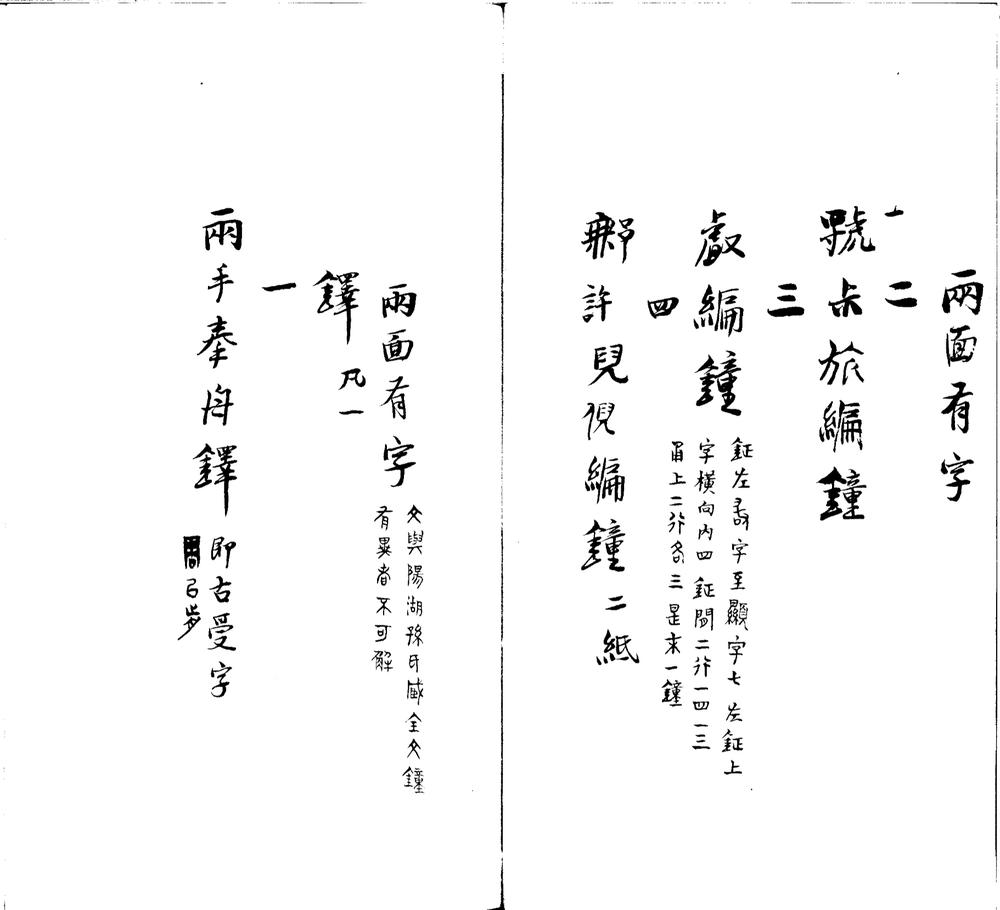 兩面有字
二
虢卡旅編鐘
三
叡編鐘
鉦左 字至顯字七左鉦上
字橫向內四鉦間二行一四一三
眉上二行各三是末一鐘
四
鄦許兒倪編鐘二紙
兩面有字
文與陽湖孫氏臧全文鐘
有異者不可解
鐸
凡一
一
兩手奉舟鐸
即古受字